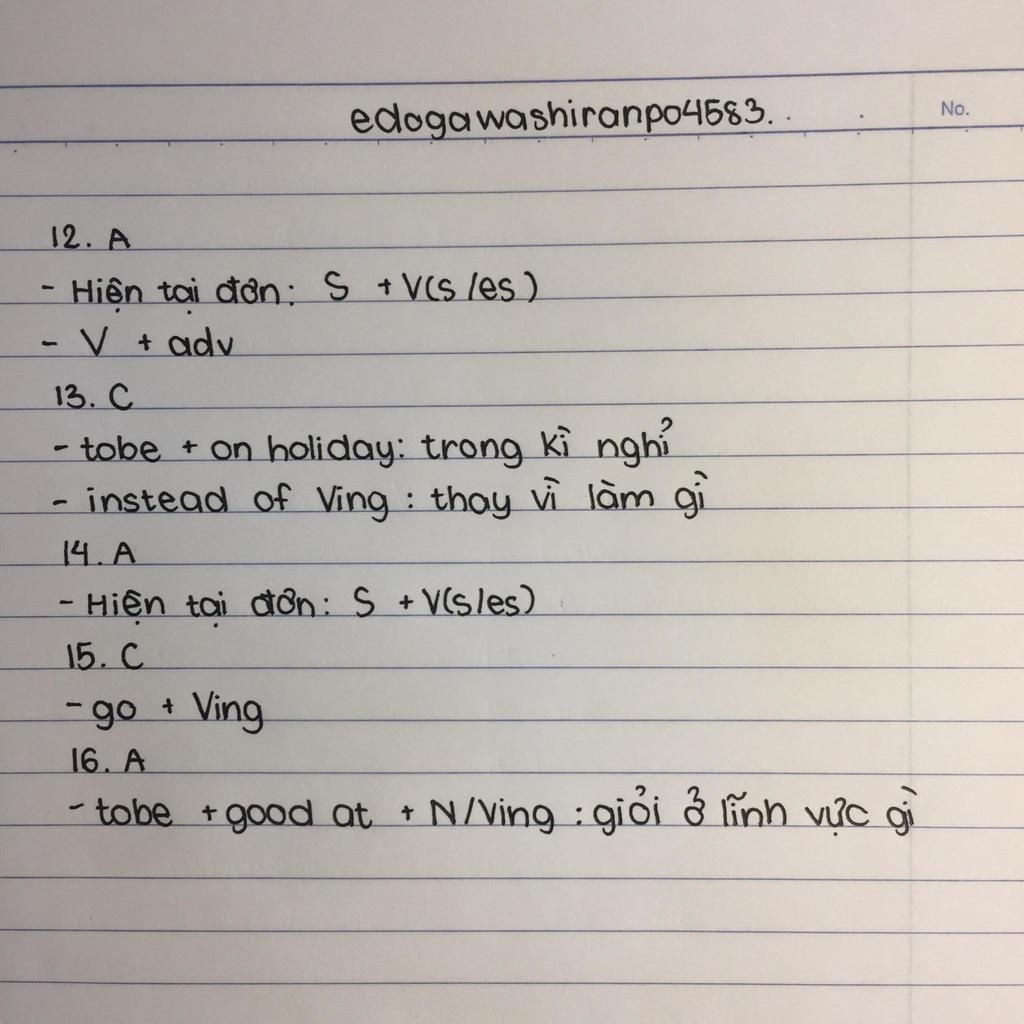 edogawashiranpo4583.
No.
12. A
- Hiện tại đơn: S + V(s/es)
- V + adv
13. C
- tobe + on holiday: trong kì nghỉ
- instead of Ving : thay vì làm gì
14. A
- Hiện tại đơn: S + V(s/es)
15. C
- go + Ving
16. A
- tobe + good at + N/Ving : giỏi ở lĩnh vực gì